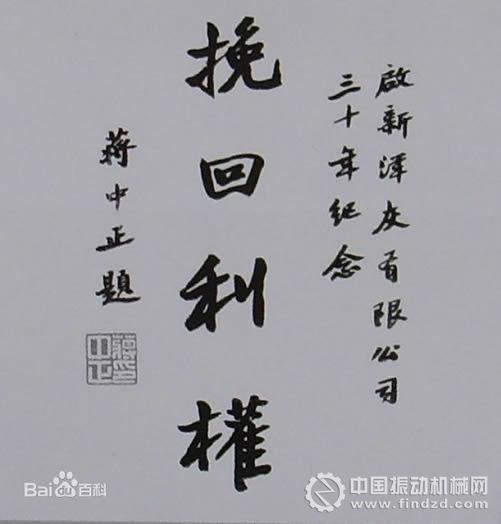 啟新洋灰有限公司
三十年紀念
挽回利權
蔣中正題
蔣中正印
Bai百科
中国振动机械网
www.findzd.com